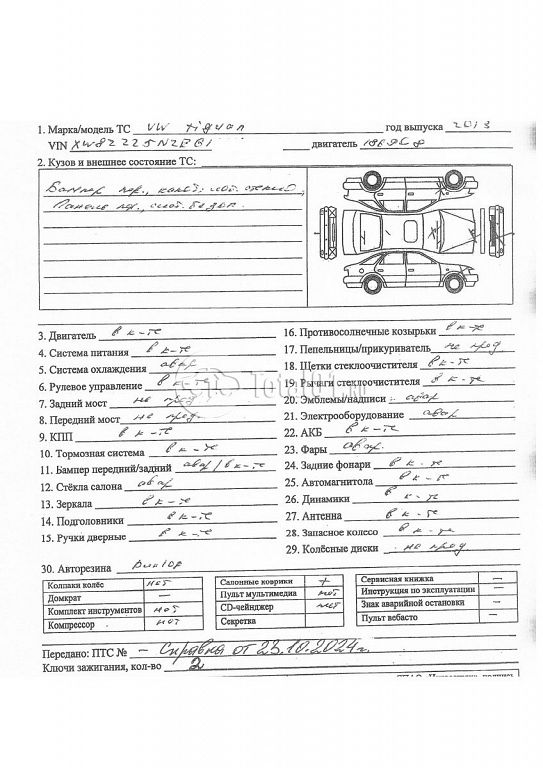 1. Марка/модель ТС VW tiguan год выпуска 2013
VIN двигатель
2. Кузов и внешнее состояние ТС:
Бампер пер., капот,
Панель пер.,
3. Двигатель в к-те
4. Система питания в к-те
5. Система охлаждения авар
6. Рулевое управление в к-те
7. Задний мост не пред.
8. Передний мост не пред.
9. КПП в к-те
10. Тормозная система в к-те
11. Бампер передний/задний авар/в к-те
12. Стёкла салона авар
13. Зеркала в к-те
14. Подголовники в к-те
15. Ручки дверные в к-те
16. Противосолнечные козырьки в к-те
17. Пепельницы/прикуриватель не пред
18. Щетки стеклоочистителя в к-те
19. Рычаги стеклоочистителя в к-те
20. Эмблемы/надписи авар
21. Электрооборудование авар
22. АКБ в к-те
23. Фары авар.
24. Задние фонари в к-те
25. Автомагнитола в к-те
26. Динамики в к-те
27. Антенна в к-те
28. Запасное колесо в к-те
29. Колёсные диски не пред.
30. Авторезина
Колпаки колёс нет
Домкрат —
Комплект инструментов нет
Компрессор нет
Салонные коврики +
Пульт мультимедиа нет
CD-чейнджер нет
Секретка
Сервисная книжка —
Инструкция по эксплуатации —
Знак аварийной остановки —
Пульт вебасто —
Передано: ПТС № — Справка от 23.10.2024г.
Ключи зажигания, кол-во 2